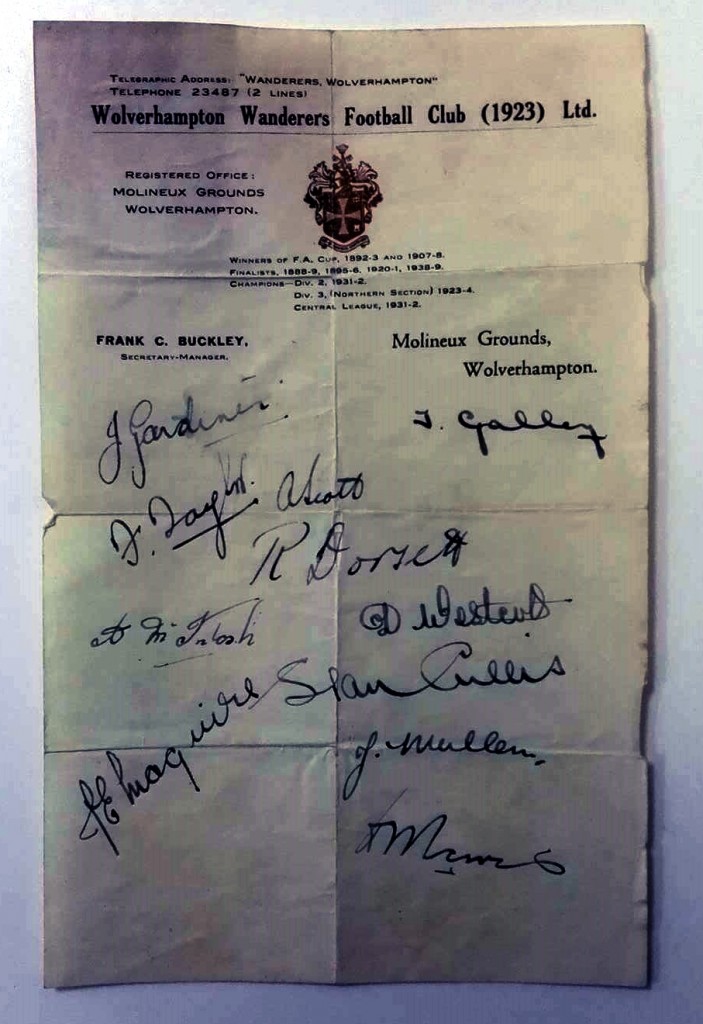 TELEGRAPHIC ADDRESS: "WANDERERS, WOLVERHAMPTON"
TELEPHONE 23487 (2 LINES)
Wolverhampton Wanderers Football Club (1923) Ltd.
REGISTERED OFFICE:
MOLINEUX GROUNDS
WOLVERHAMPTON.
WINNERS OF F.A. CUP, 1892-3 AND 1907-8.
FINALISTS, 1888-9, 1895-6, 1920-1, 1938-9.
CHAMPIONS—DIV. 2, 1931-2.
DIV. 3, (NORTHERN SECTION) 1923-4.
CENTRAL LEAGUE, 1931-2.
FRANK C. BUCKLEY,
SECRETARY-MANAGER.
Molineux Grounds,
Wolverhampton.
J Gardiner.
T. Galley
F. Taylor.
A Scott
R Dorsett
A McIntosh
D Westcott
Stan Cullis
J E Maguire
J. Mullen.